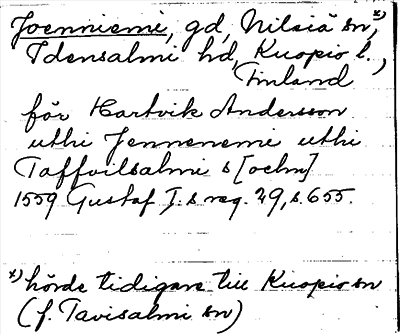 Joenniemi, gd, Nilsiä sn, x)
Idensalmi hd, Kuopio l.,
Finland
för Hartvik Andersson
uthi Jennenemi uthi
Taffvilsalmi s[ochn]
1559 Gustaf I.s reg. 29, s. 655.
x) hörde tidigare till Kuopio sn
(f. Tavisalmi sn)